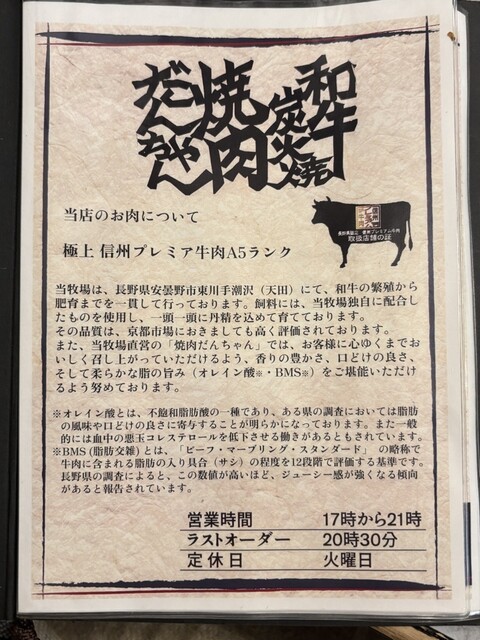 和牛
炭火焼
焼肉
だんちゃん
当店のお肉について
極上 信州プレミア牛肉A5ランク
取扱店舗の証
当牧場は、長野県安曇野市東川手潮沢（天田）にて、和牛の繁殖から
肥育までを一貫して行っております。飼料には、当牧場独自に配合し
たものを使用し、一頭一頭に丹精を込めて育てております。
その品質は、京都市場におきましても高く評価されております。
また、当牧場直営の「焼肉だんちゃん」では、お客様に心ゆくまでお
いしく召し上がっていただけるよう、香りの豊かさ、口どけの良さ、
そして柔らかな脂の旨み（オレイン酸※・BMS※）をご堪能いただけ
るよう努めております。
※オレイン酸とは、不飽和脂肪酸の一種であり、ある県の調査においては脂肪
の風味や口どけの良さに寄与することが明らかになっております。また一般
的には血中の悪玉コレステロールを低下させる働きがあるともされています。
※BMS(脂肪交雑）とは、「ビーフ・マーブリング・スタンダード」 の略称で
牛肉に含まれる脂肪の入り具合（サシ）の程度を12段階で評価する基準です。
長野県の調査によると、この数値が高いほど、ジューシー感が強くなる傾向
があると報告されています。
営業時間 17時から21時
ラストオーダー 20時30分
定休日 火曜日